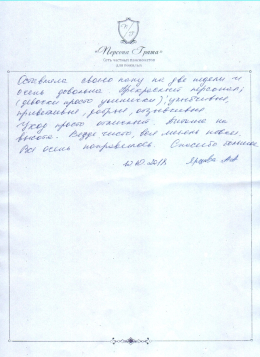 «Царская Грань»
Сеть частных пансионатов
для пожилых
Оставляла своего папу на две недели и
очень довольна. Прекрасный персонал,
(девочки просто умнички); учтивые,
приветливые, добрые, отзывчивые
Уход просто отличный. Питание на
высоте. Везде чисто, вся мебель новая.
Все очень понравилось. Спасибо большое.
А.А.